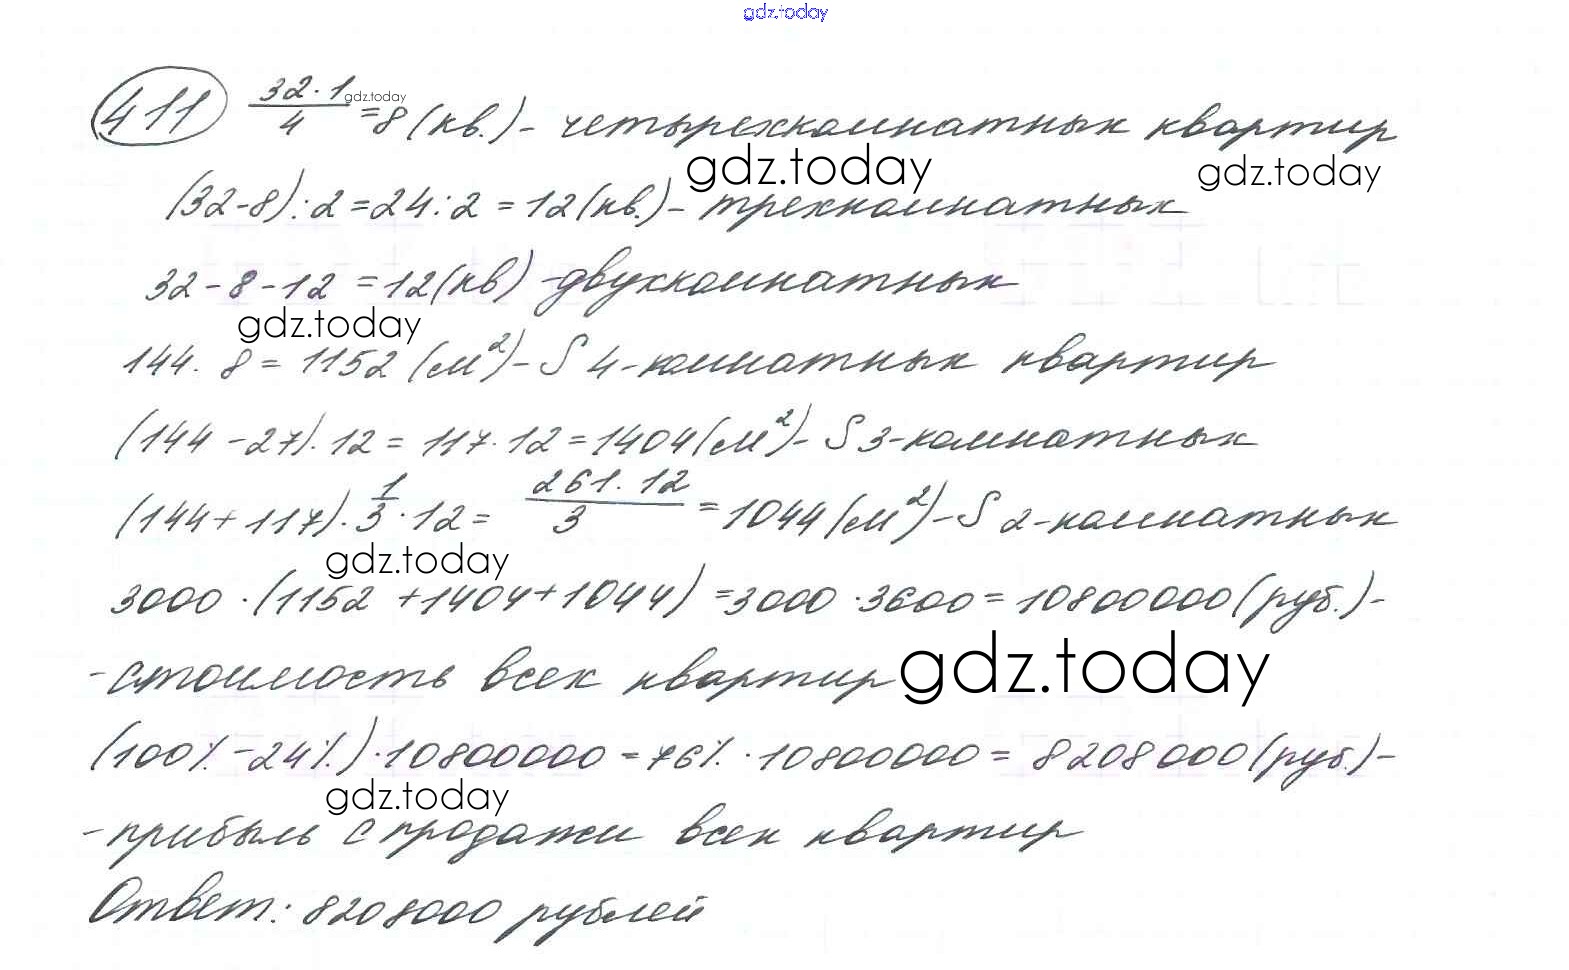 gdz.today
411 32·1/4 = 8 (кв.) - четырехкомнатных квартир
gdz.today
gdz.today gdz.today
(32-8):2=24:2=12(кв.)- трехкомнатных
32-8-12=12(кв) -двухкомнатных
gdz.today
144·8=1152(см²)-S 4-комнатных квартир
(144-27)·12=117·12=1404(см²)-S 3-комнатных
(144+117)·1/3·12=261·12/3=1044(см²)-S 2-комнатных
gdz.today
3000·(1152+1404+1044)=3000·3600=10800000(руб.)-
-стоимость всех квартир
gdz.today
(100%-24%)·10800000=76%·10800000=8208000(руб.)-
gdz.today
-прибыль с продажи всех квартир
Ответ: 8208000 рублей